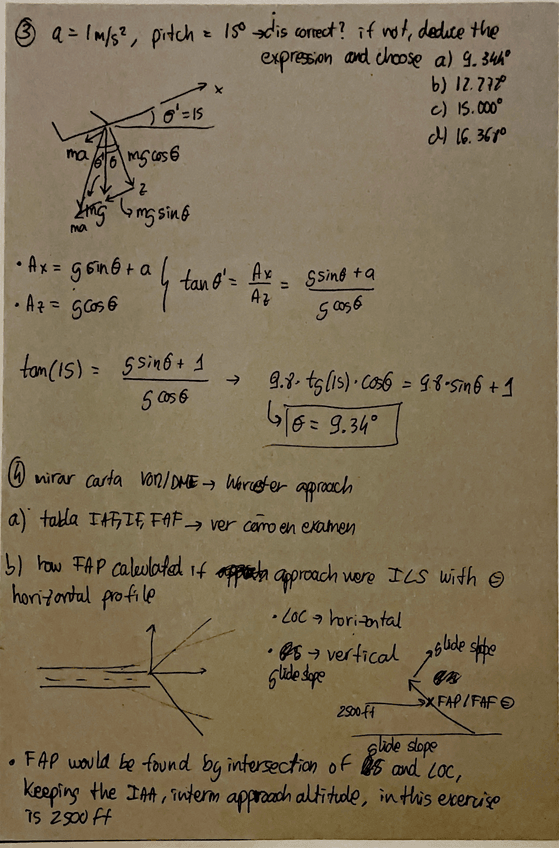 ③ a = 1m/s², pitch = 15° → is correct? if not, deduce the
expression and choose a) 9.344°
b) 12.772°
c) 15.000°
d) 16.367°
x
θ' = 15
ma θ' θ mg cos θ
z
mg mg sin θ
ma
• Ax = g sin θ + a
• Az = g cos θ
tan θ' = Ax/Az = (g sin θ + a)/(g cos θ)
tan(15) = (g sin θ + 1)/(g cos θ) → 9.8 · tg(15) · cos θ = 9.8 · sin θ + 1
θ = 9.34°
④ mirar carta VOR/DME → Worcester approach
a) tabla IAF, IF, FAF → ver cómo en examen
b) how FAP calculated if approach were ILS with =
horizontal profile
• LOC → horizontal
• → vertical
glide slope
glide slope
2500 ft
x FAP/FAF =
glide slope
• FAP would be found by intersection of and LOC,
keeping the IAA, interm approach altitude, in this exercise
is 2500 ft